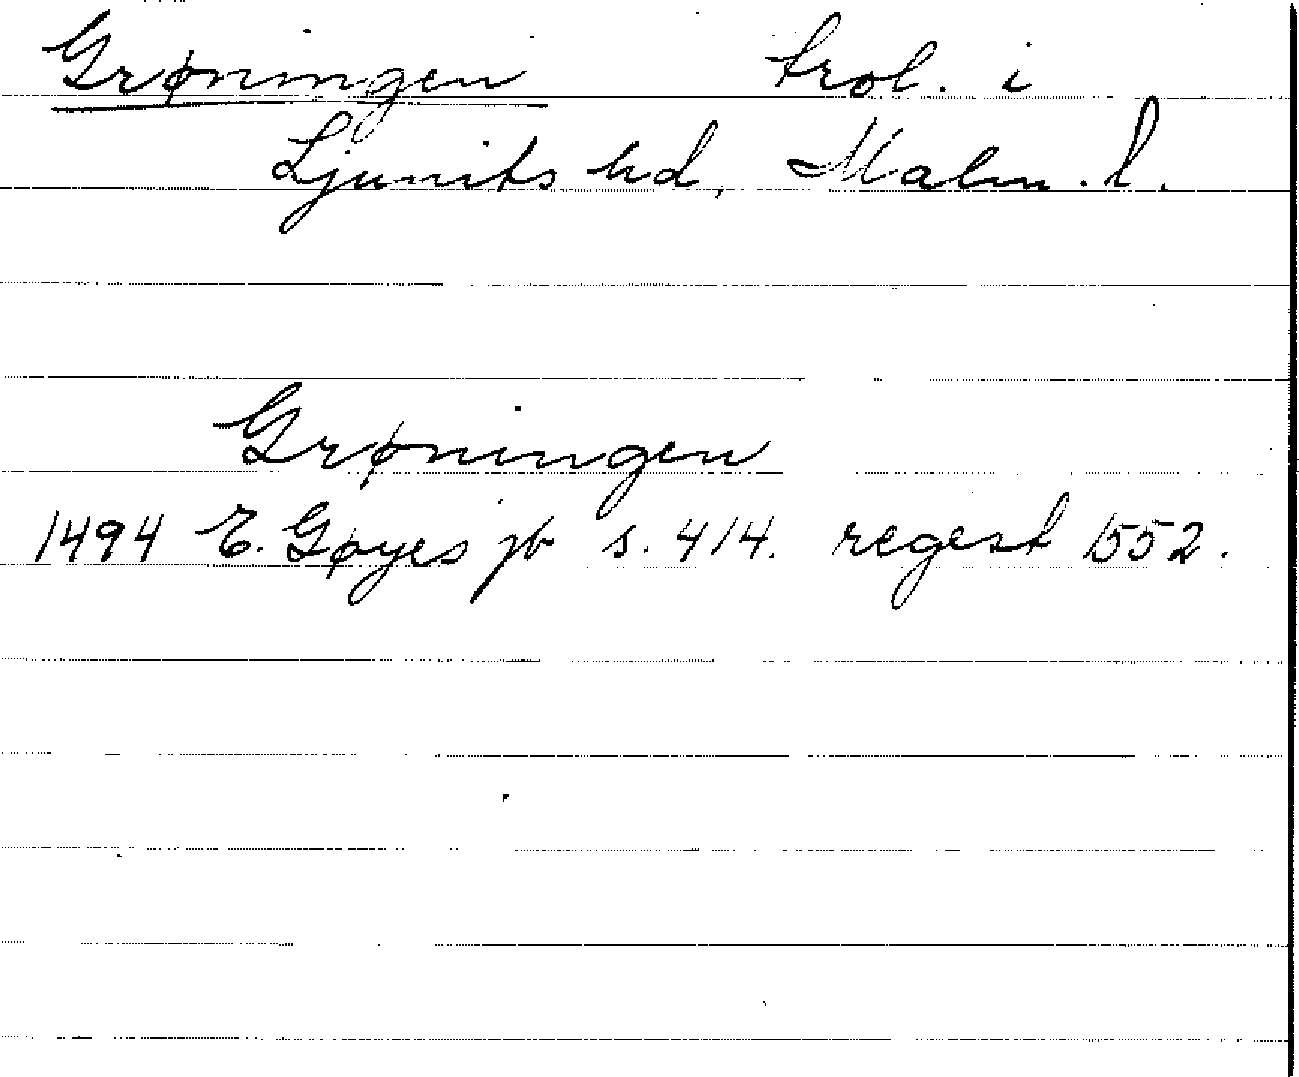 Grøningen trol. i
Ljunits hd, Malm. l.
Grøningen
1494 E. Gøyes jb s. 414. regest 1552.